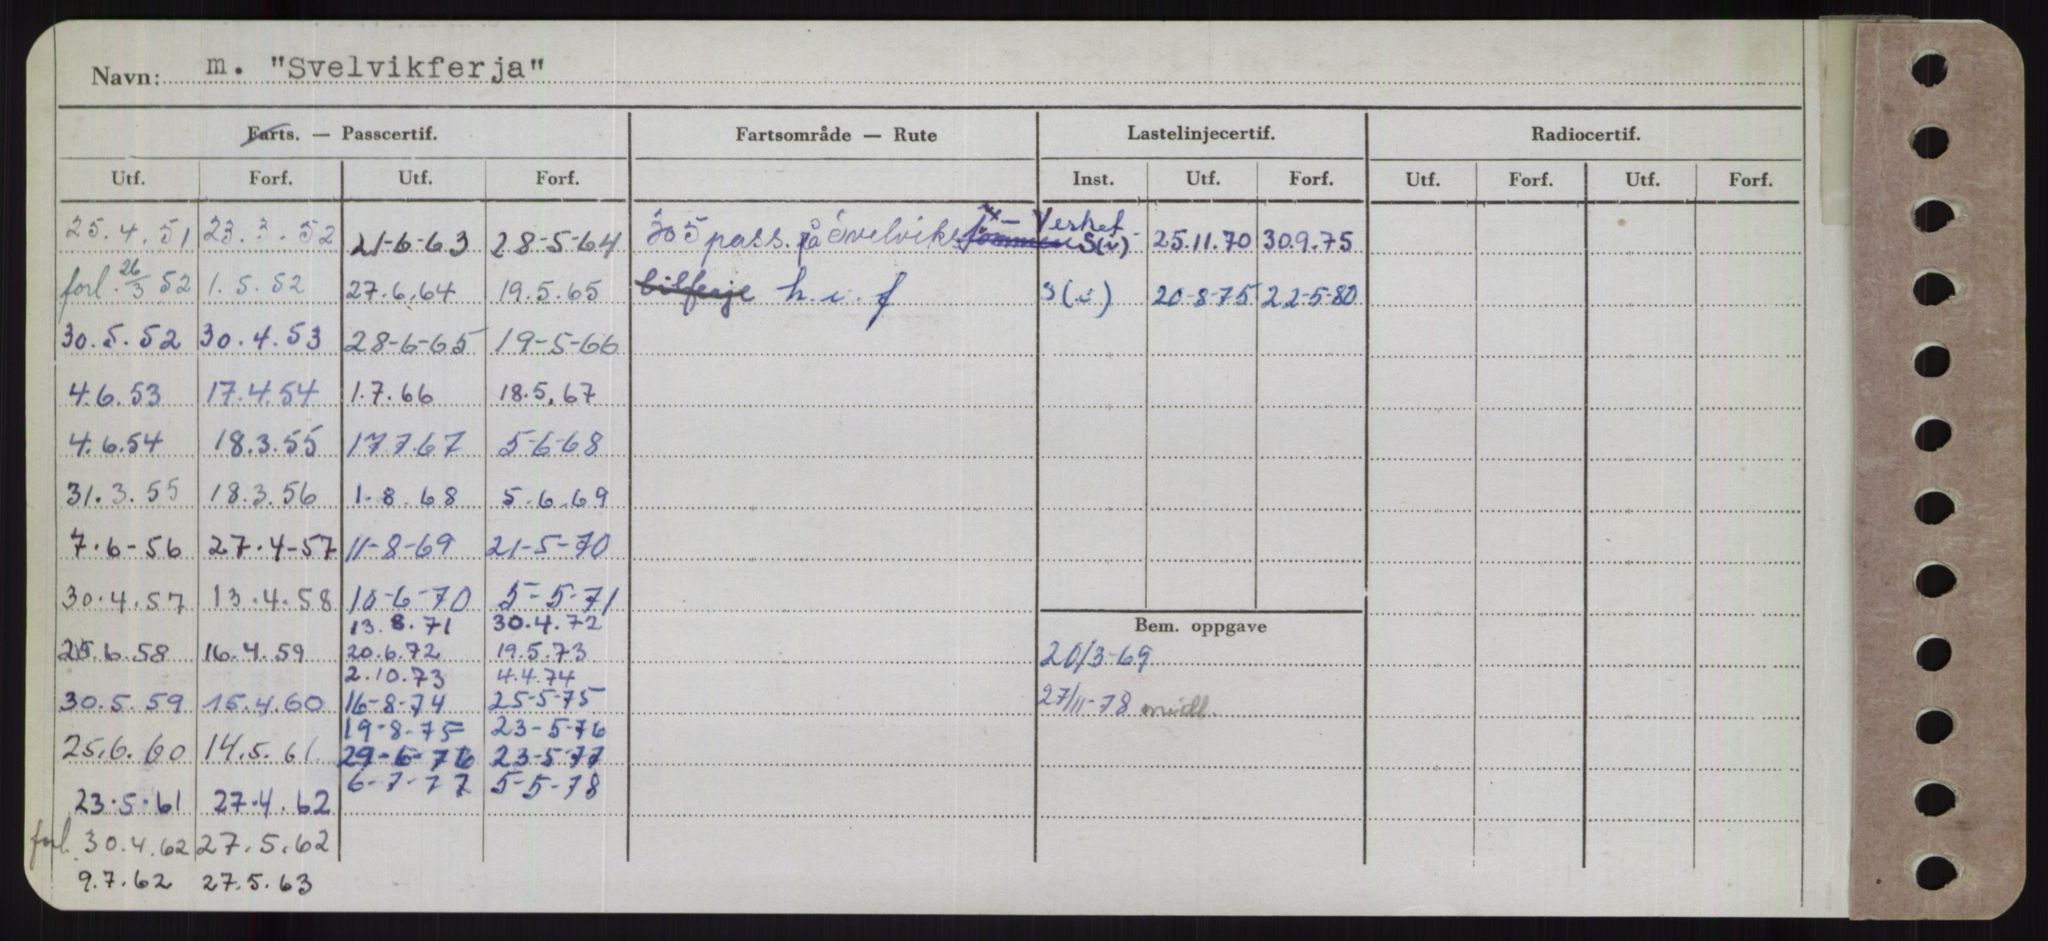 Navn: m. "Svelvikferja"
Farts. — Passcertif. Fartsområde — Rute Lastelinjecertif. Radiocertif.
Utf. Forf. Utf. Forf. Inst. Utf. Forf. Utf. Forf. Utf. Forf.
25.4.51 23.3.52 21-6-63 28-5-64 305 pass. på Svelvik - Verket S(v) 25.11.70 30.9.75
forl. 26/3 52 1.5.52 27.6.64 19.5.65 bilferje h.v.f 20-8-75 22-5-80
30.5.52 30.4.53 28-6-65 19-5-66
4.6.53 17.4.54 1.7.66 18.5.67
4.6.54 18.3.55 17.7.67 5-6-68
31.3.55 18.3.56 1-8.68 5.6.69
7.6-56 27.4-57 11-8-69 21-5-70
30.4.57 13.4.58 10-6-70 5-5-71
13.8.71 30.4.72
Bem. oppgave
25.6.58 16.4.59 20.6.72 19.5.73 20/3-69
2.10.73 4.4.74
30.5.59 15.4.60 16-8-74 25-5-75 27/11-78
19-8-75 23-5-76
25.6.60 14.5.61 29-6-76 23-5-77
6-7-77 5-5-78
23.5.61 27.4.62
forl. 30.4.62 27.5.62
9.7.62 27.5.63